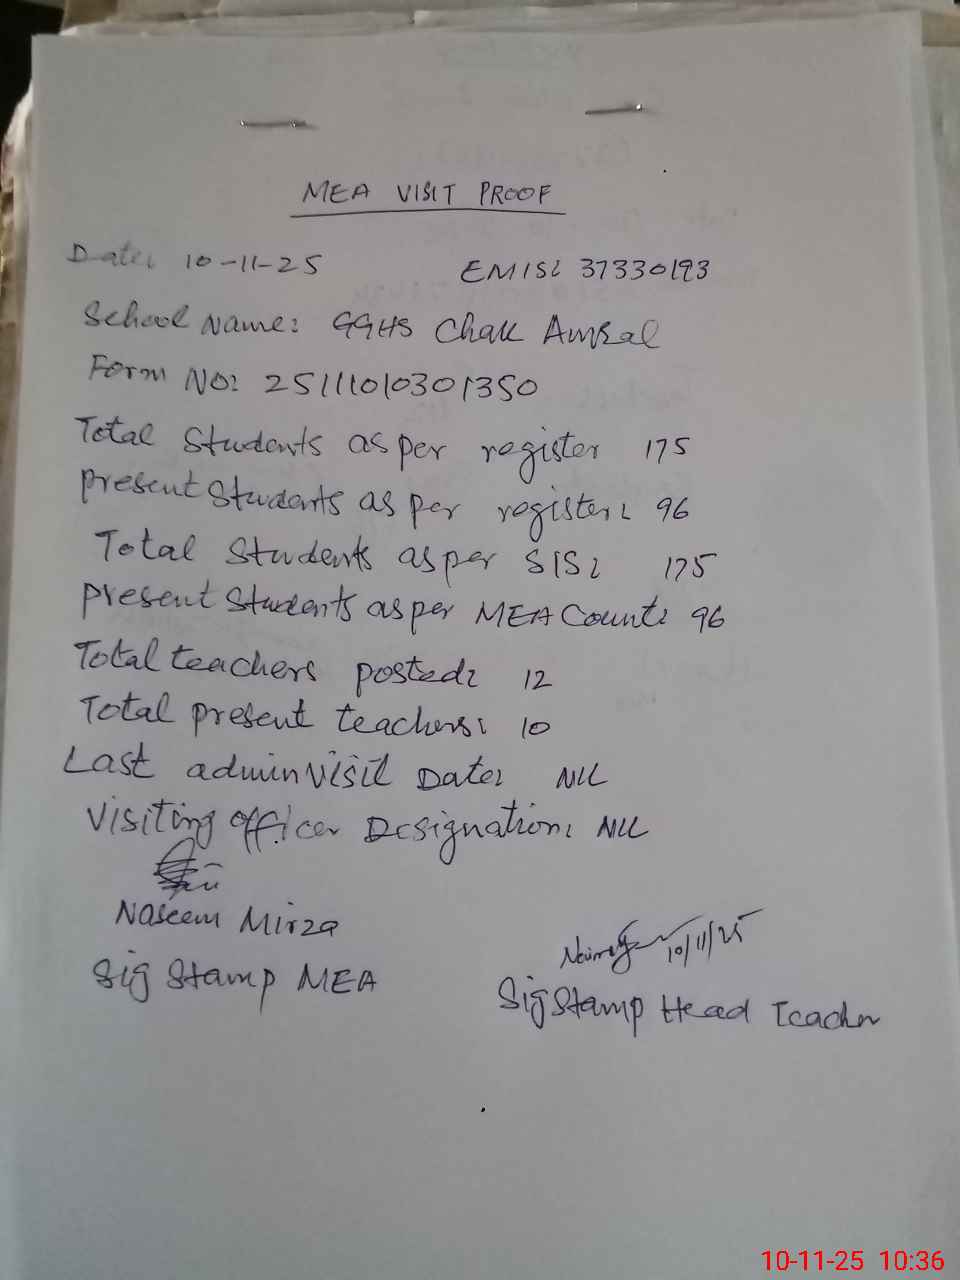 MEA VISIT PROOF
Date: 10-11-25 EMIS: 37330193
School Name: GGHS Chak Amral
Form NO: 25111010301350
Total Students as per register 175
Present Students as per register: 96
Total Students as per SIS: 175
Present Students as per MEA Count: 96
Total teachers posted: 12
Total present teachers: 10
Last admin visit Date: NIL
Visiting officer Designation: NIL
Naseem Mirza
10/11/25
Sig Stamp MEA
Sig Stamp Head Teacher
10-11-25 10:36